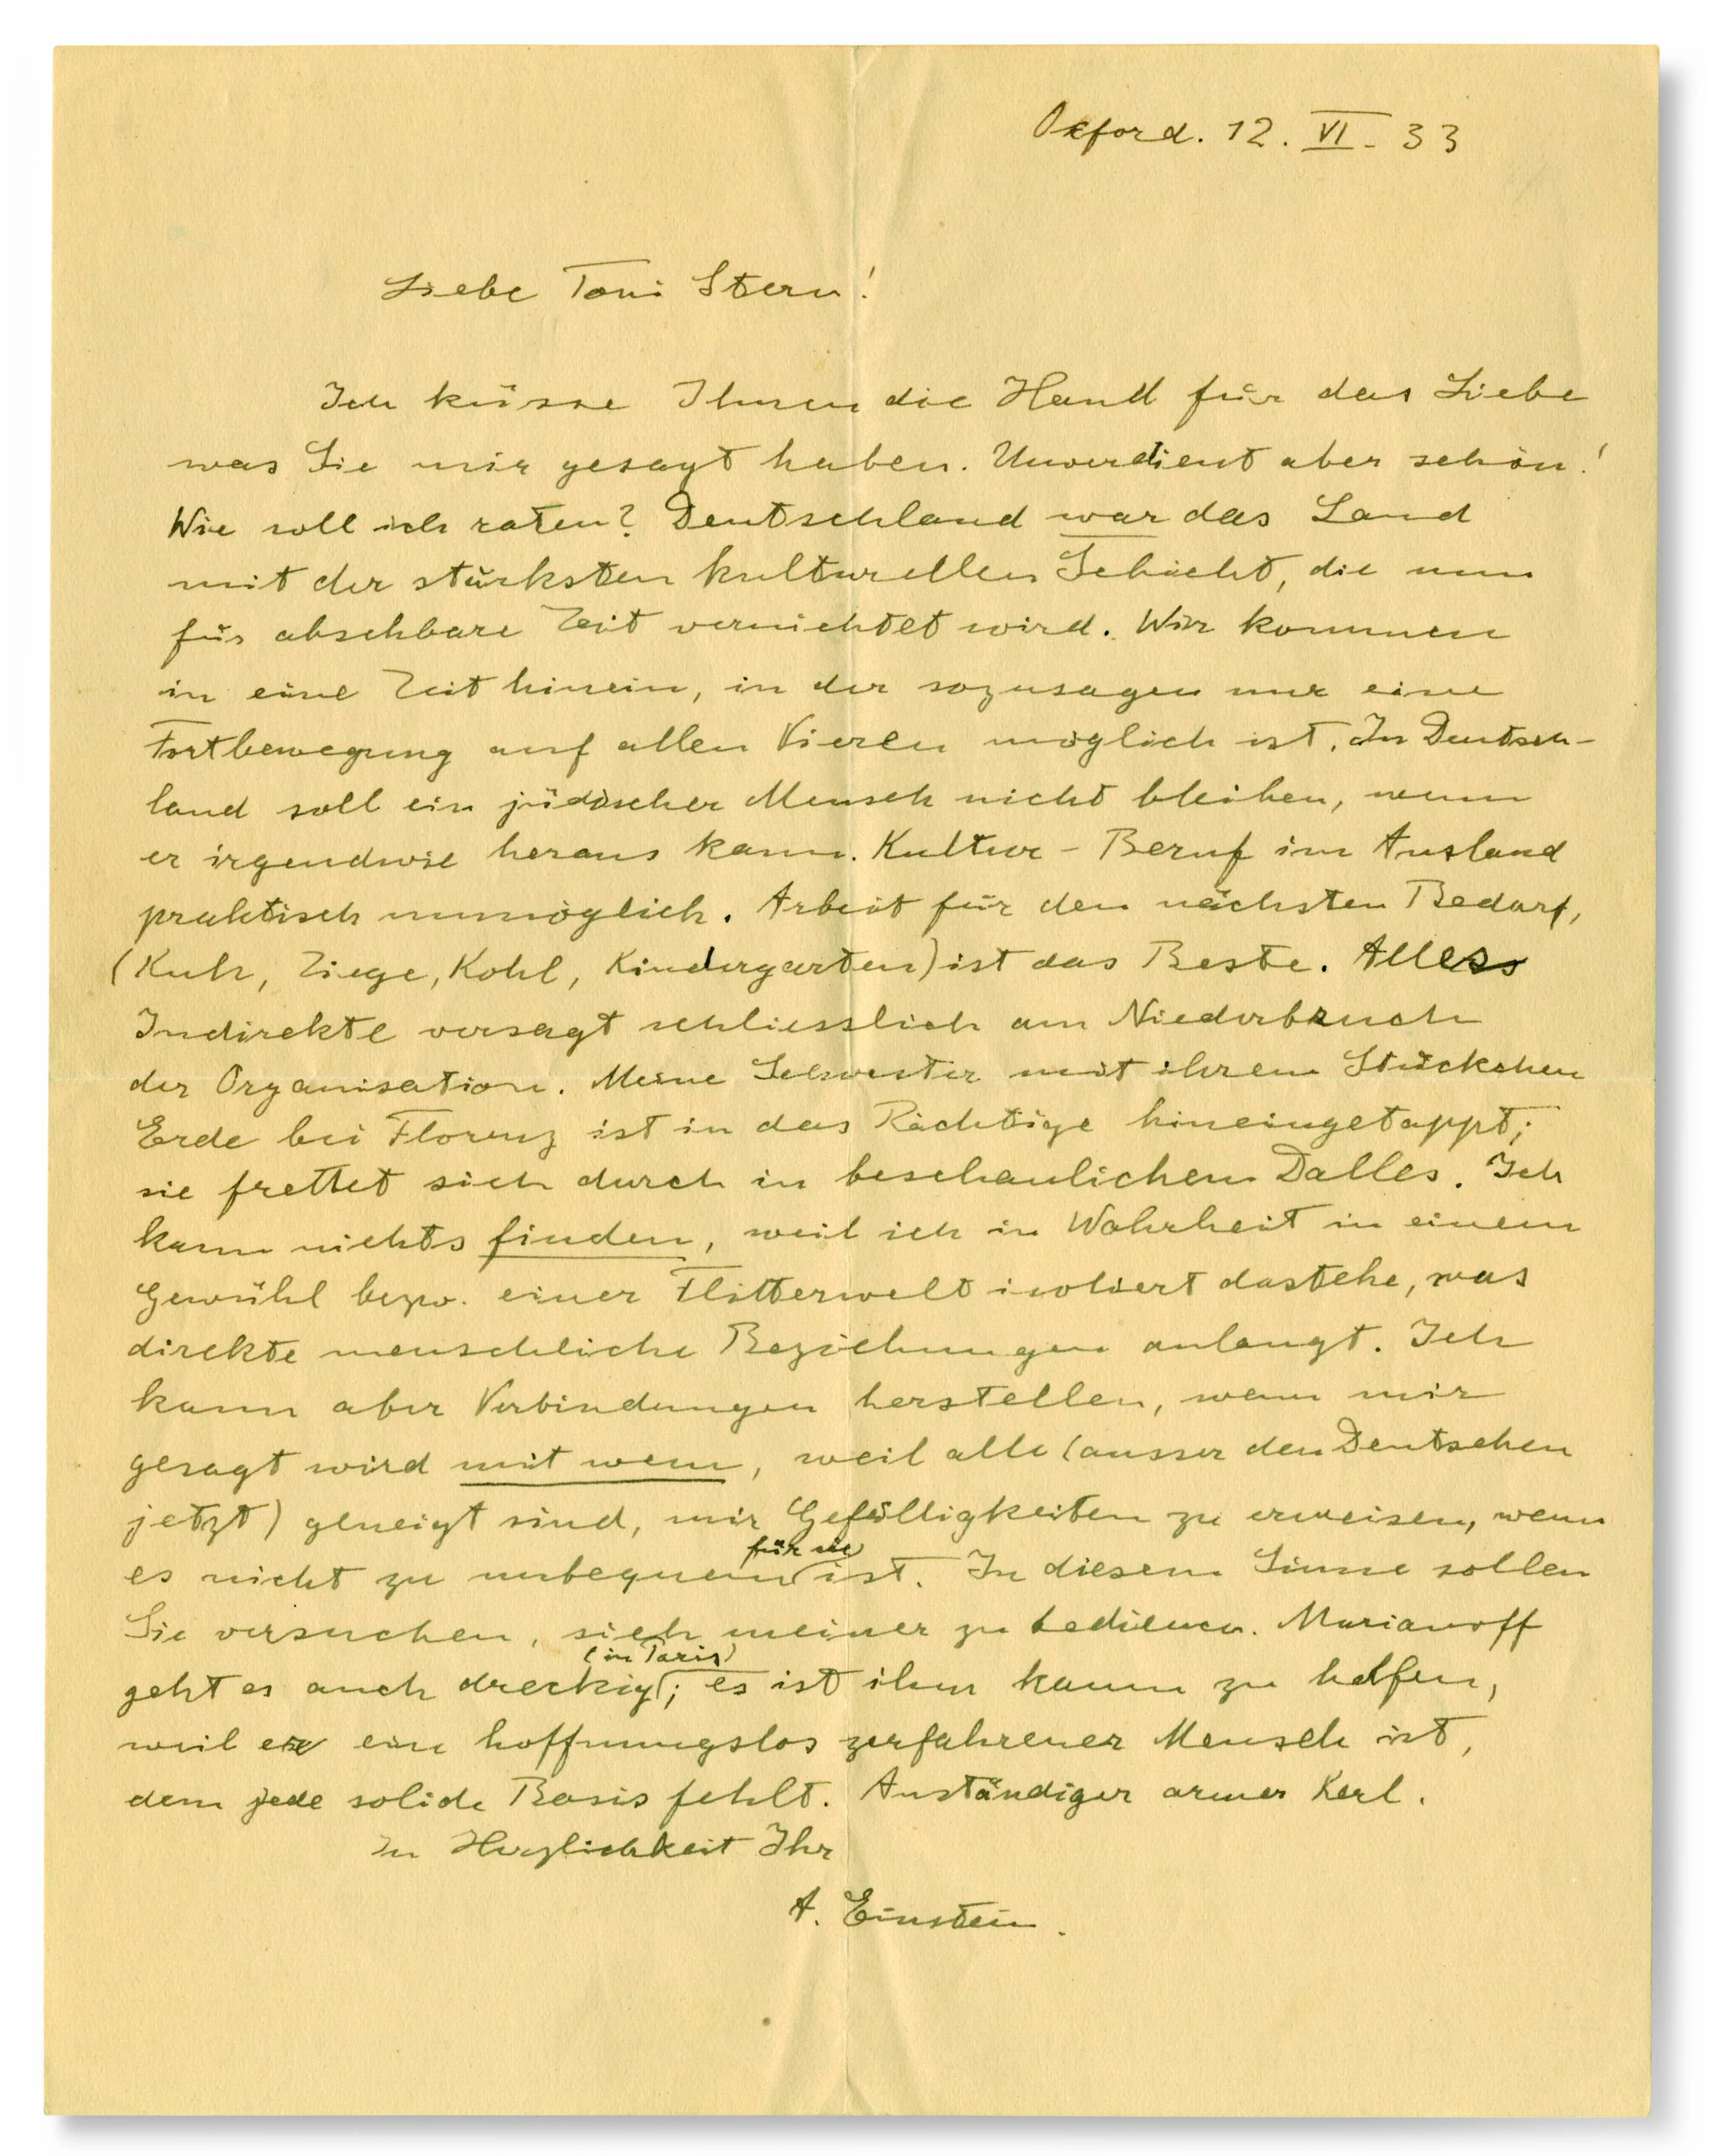 Oxford. 12. VI. 33
Liebe Toni Stern!
Ich küsse Ihnen die Hand für das Liebe
was Sie mir gesagt haben. Unverdient aber schön!
Wie soll ich raten? Deutschland war das Land
mit der stärksten kulturellen Schicht, die nun
für absehbare Zeit vernichtet wird. Wir kommen
in eine Zeit hinein, in der sozusagen nur eine
Fortbewegung auf allen Vieren möglich ist. In Deutsch-
land soll ein jüdischer Mensch nicht bleiben, wenn
er irgendwie heraus kann. Kultur-Beruf im Ausland
praktisch unmöglich. Arbeit für den nächsten Bedarf,
(Kuh, Ziege, Kohl, Kindergarten) ist das Beste. Alles
Indirekte versagt schliesslich am Niederbruch
der Organisation. Meine Schwester mit ihrem Stückchen
Erde bei Florenz ist in das Richtige hineingetappt;
sie frettet sich durch in beschaulichem Dalles. Ich
kann nichts finden, weil ich in Wahrheit in einem
Gewühl bezw. einer Flitterwelt isoliert dastehe, was
direkte menschliche Beziehungen anlangt. Ich
kann aber Verbindungen herstellen, wenn mir
gesagt wird mit wem, weil alle (ausser den Deutschen
jetzt) geneigt sind, mir Gefälligkeiten zu erweisen, wenn
es nicht zu unbequem für sie ist. In diesem Sinne sollen
Sie versuchen, sich meiner zu bedienen. Marianoff
geht es auch dreckig (in Paris); es ist ihm kaum zu helfen,
weil er ein hoffnungslos zerfahrener Mensch ist,
dem jede solide Basis fehlt. Anständiger armer Kerl.
In Herzlichkeit Ihr
A. Einstein.